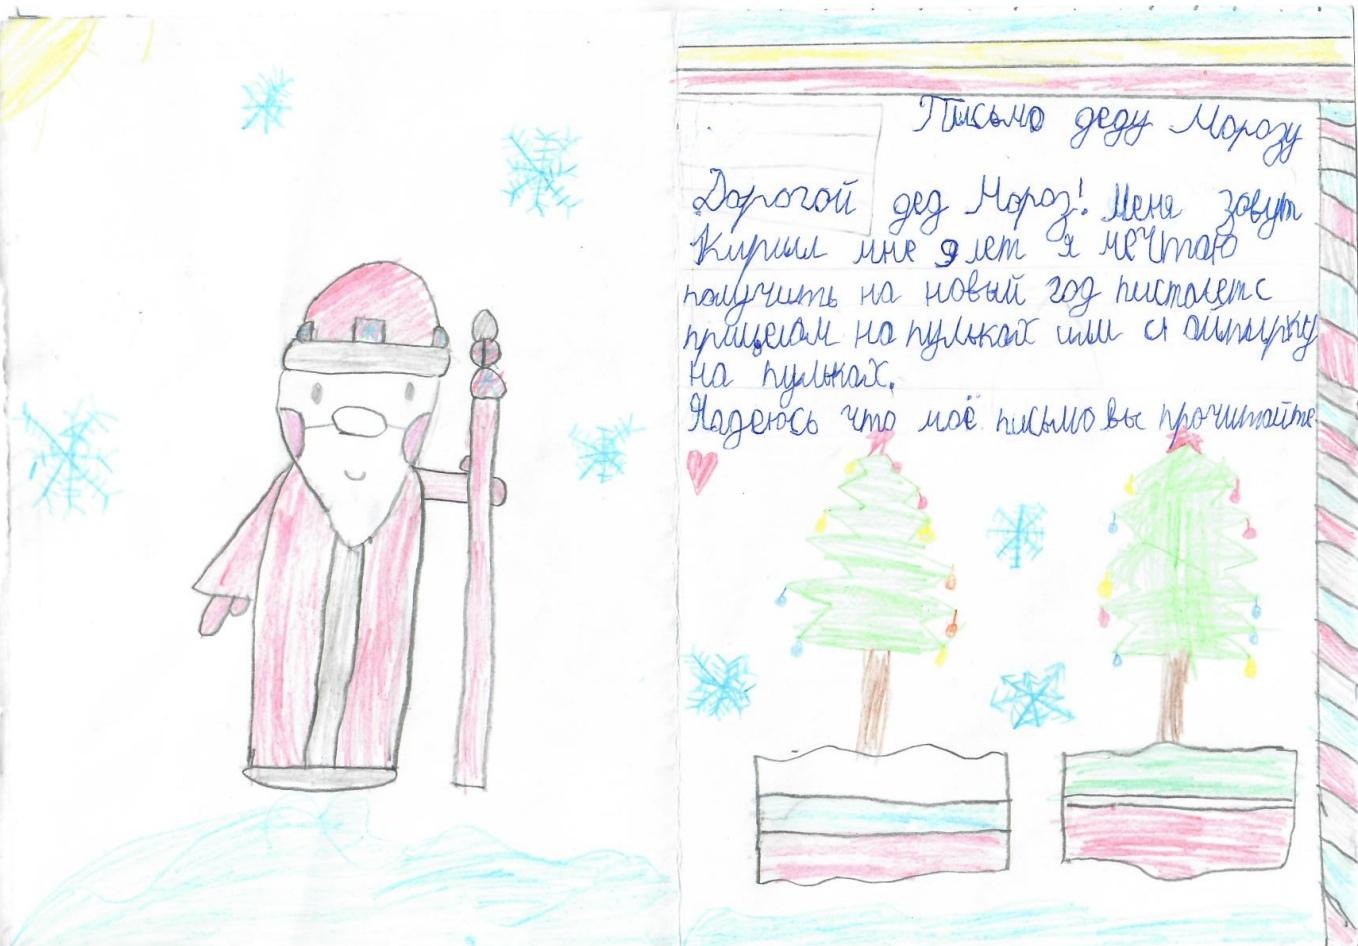 Письмо деду Морозу
Дорогой дед Мороз! Меня зовут
Кирилл мне 9 лет я мечтаю
получить на новый год пистолет с
прицелом на пульках или
на пульках.
Надеюсь что моё письмо вы прочитайте